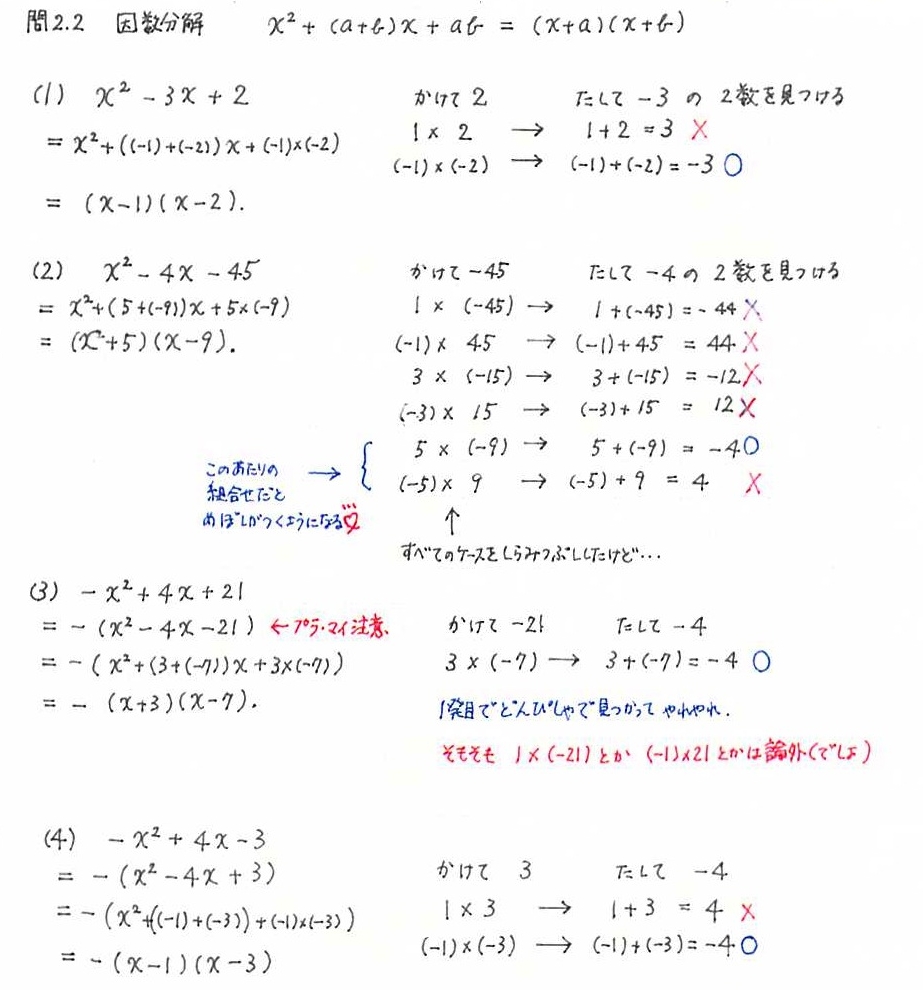 問2.2 因数分解 x² + (a+b)x + ab = (x+a)(x+b)
(1) x² - 3x + 2 かけて 2 たして -3 の 2数を見つける
= x² + ((-1)+(-2))x + (-1)×(-2) 1 × 2 → 1+2 = 3 ×
(-1)×(-2) → (-1)+(-2) = -3 ○
= (x-1)(x-2).
(2) x² - 4x - 45 かけて -45 たして -4の 2数を見つける
= x²+(5+(-9))x+5×(-9) 1 × (-45) → 1+(-45) = -44 ×
= (x+5)(x-9). (-1)× 45 → (-1)+45 = 44 ×
3 × (-15) → 3+(-15) = -12 ×
(-3)× 15 → (-3)+15 = 12 ×
5 × (-9) → 5+(-9) = -4 ○
(-5)× 9 → (-5)+9 = 4 ×
このあたりの →
組合せだと
めぼしがつくようになる♡
↑
すべてのケースをしらみつぶししたけど…
(3) -x² + 4x + 21
= -(x² - 4x - 21) ←プラ・マイ注意、 かけて -21 たして -4
= -(x²+(3+(-7))x+3×(-7)) 3×(-7) → 3+(-7) = -4 ○
= -(x+3)(x-7).
1発目でどんぴしゃで見つかって やれやれ.
そもそも 1×(-21)とか (-1)×21とかは論外(でしょ)
(4) -x² + 4x - 3
= -(x² - 4x + 3) かけて 3 たして -4
= -(x²+((-1)+(-3))+(-1)×(-3)) 1×3 → 1+3 = 4 ×
(-1)×(-3) → (-1)+(-3) = -4 ○
= -(x-1)(x-3)